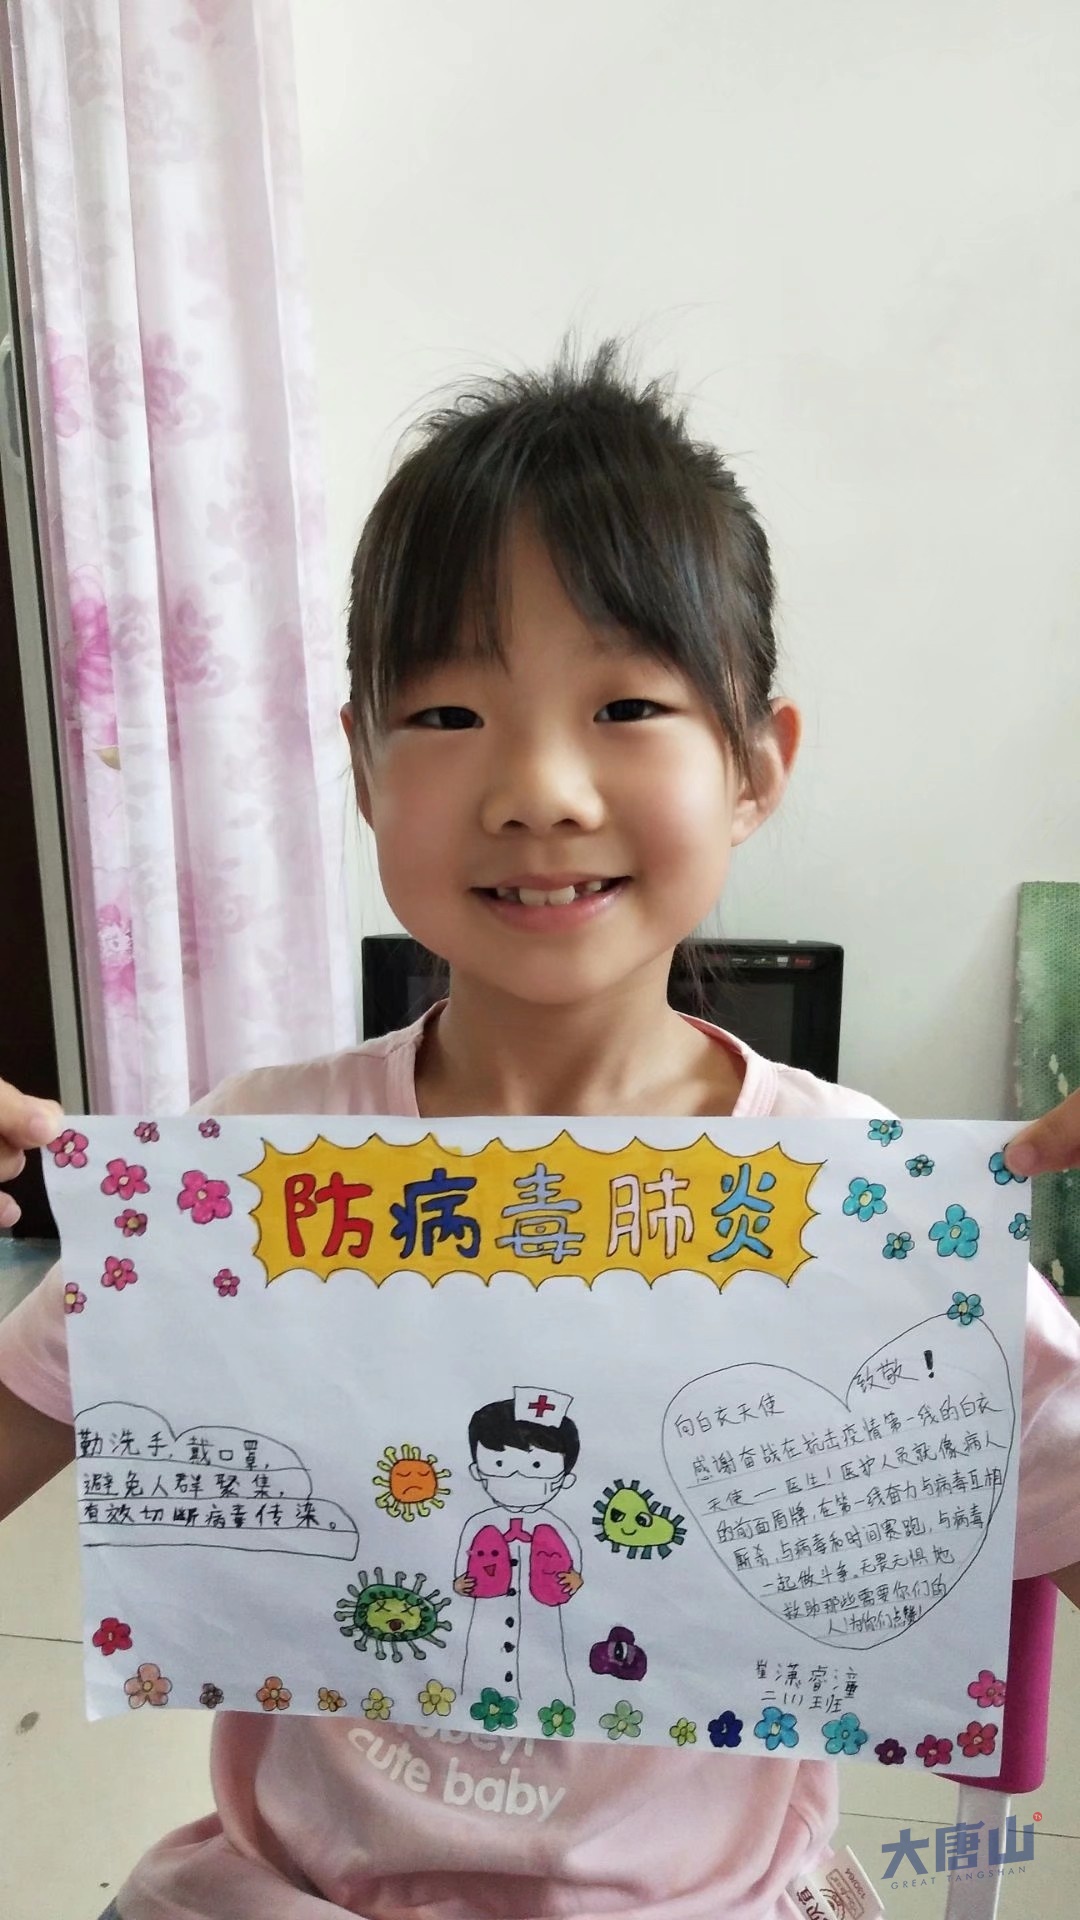 防病毒肺炎
勤洗手，戴口罩，
避免人群聚集，
有效切断病毒传染。
致敬！
向白衣天使
感谢奋战在抗击疫情第一线的白衣
天使——医生！医护人员就像病人
的前面盾牌，在第一线奋力与病毒互相
厮杀，与病毒和时间赛跑，与病毒
一起做斗争。无畏无惧地
救助那些需要你们的
人！为你们点赞！
崔潇睿潼
二（1）班
cute baby
大唐山
GREAT TANGSHAN